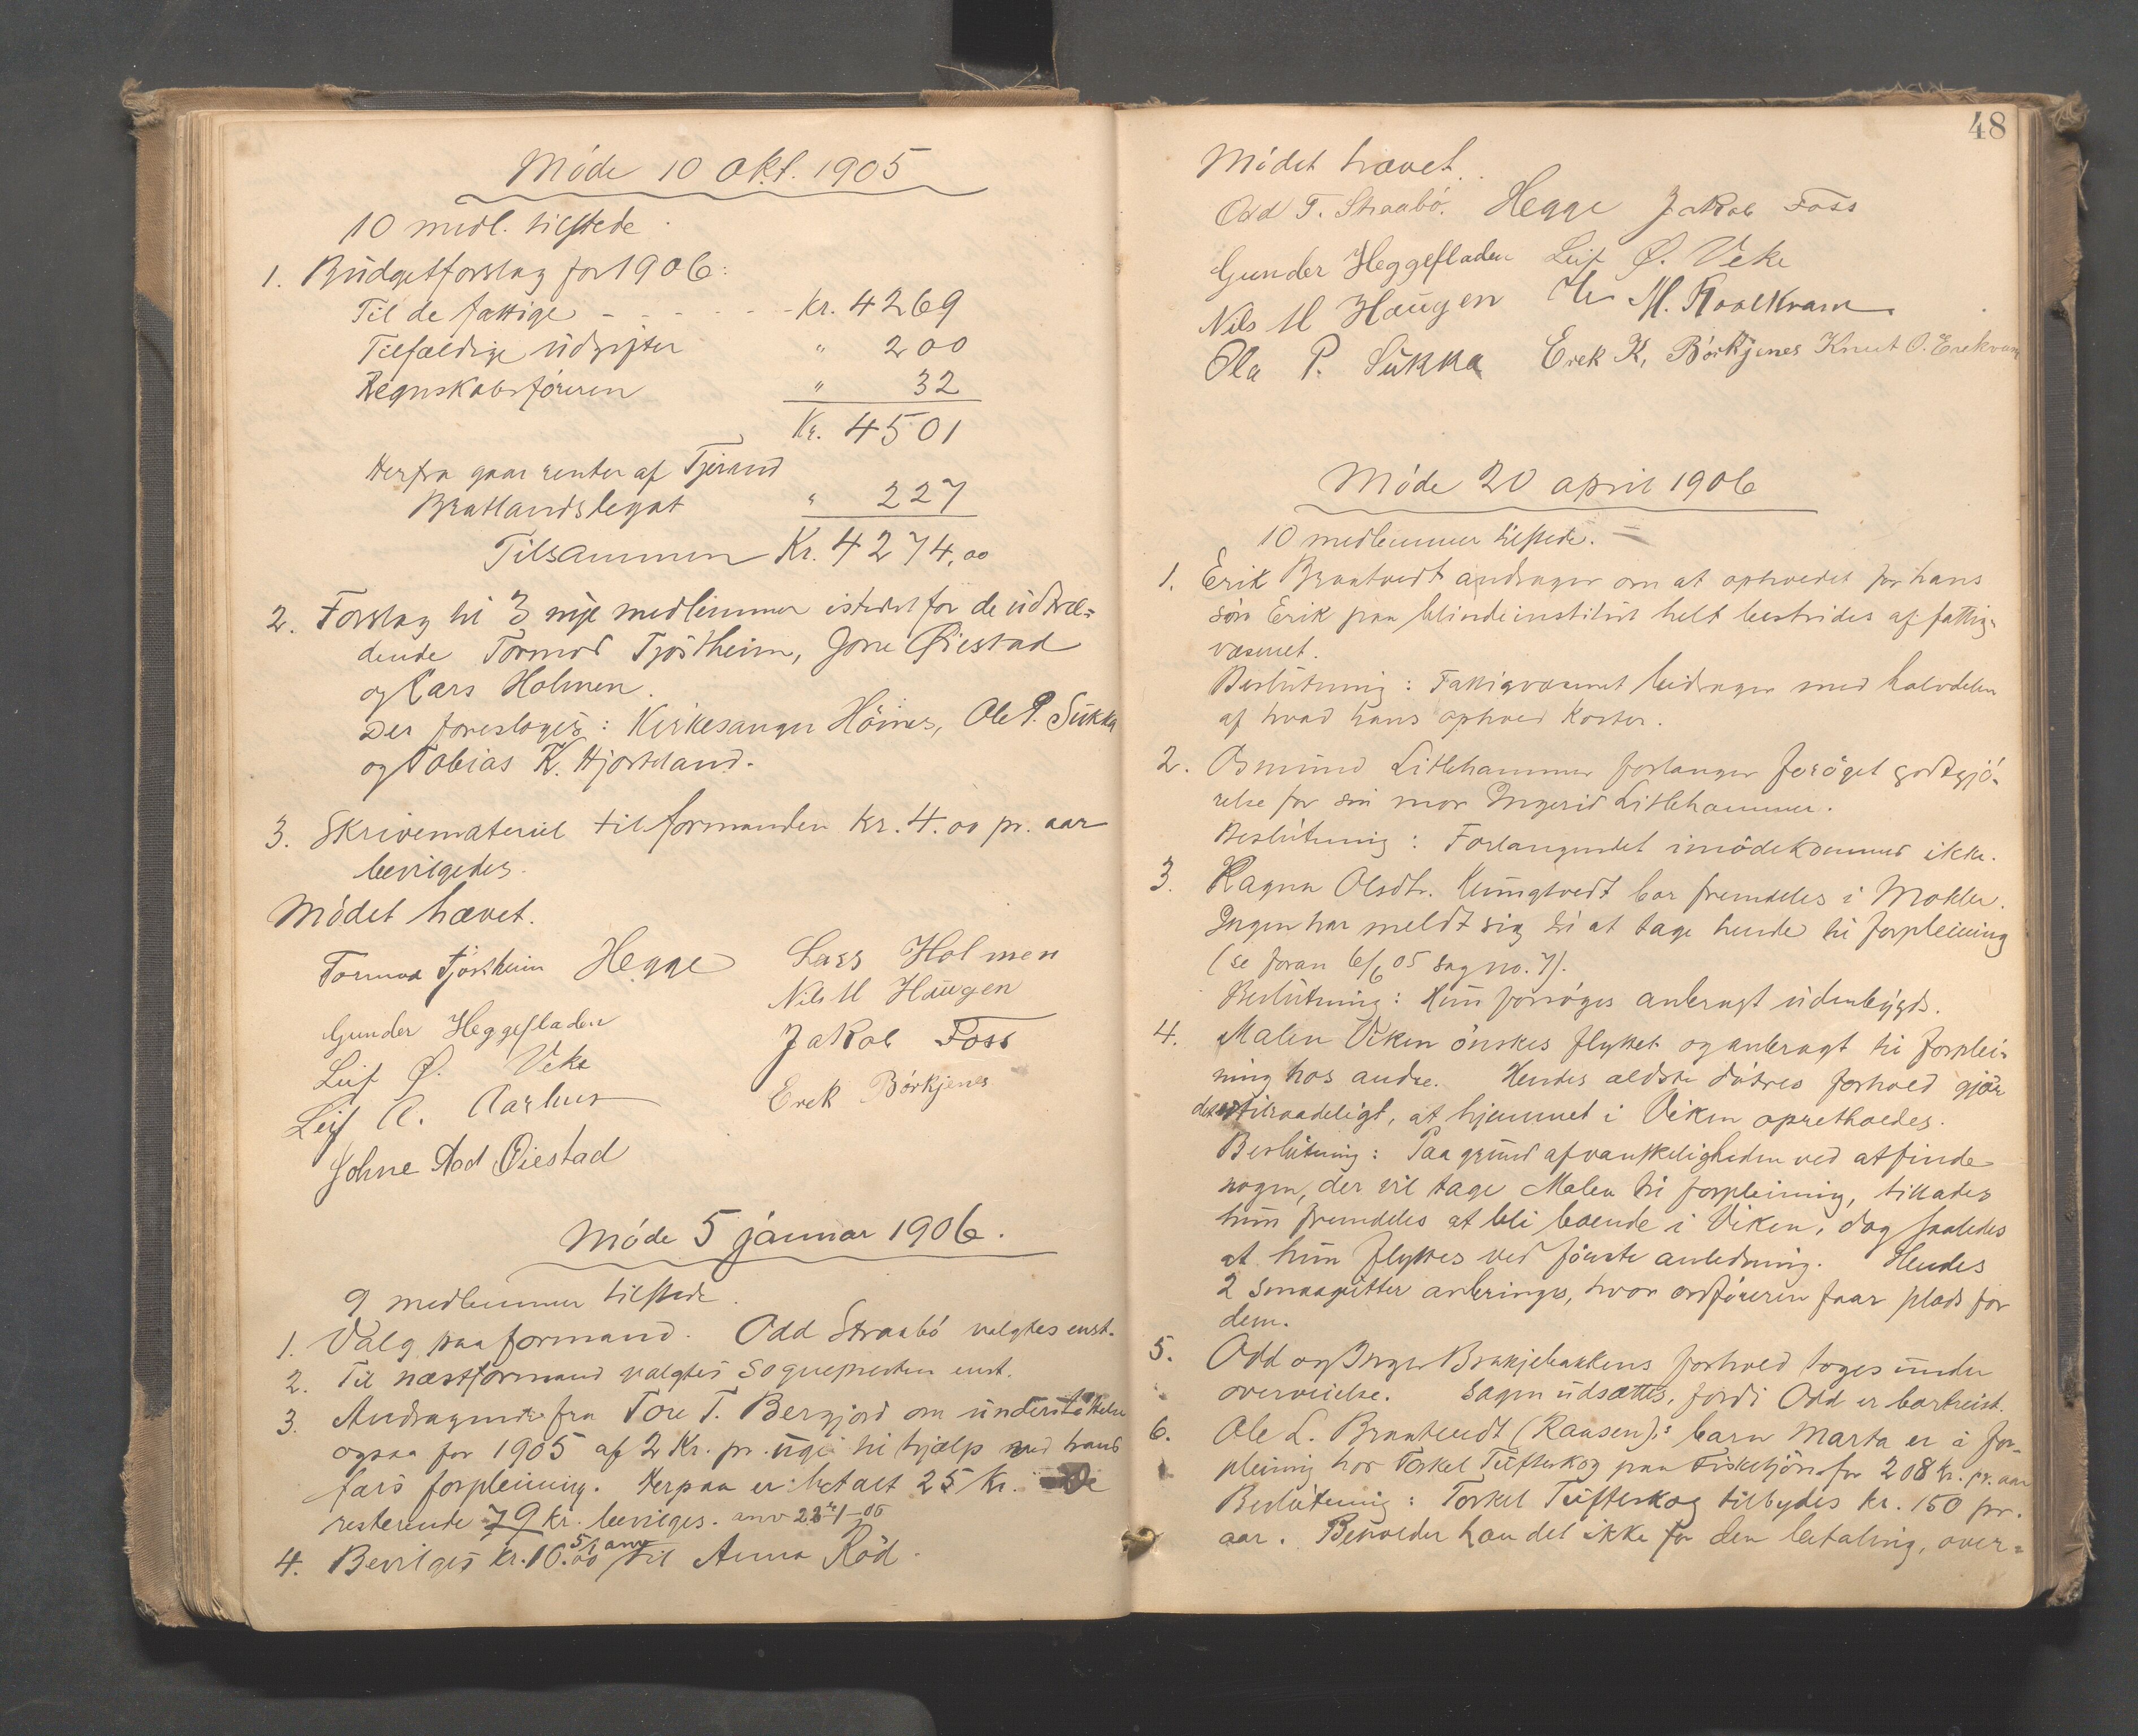 Møde 10 okt. 1905
10 medl. tilstede.
1. Budgetforslag for 1906:
Til de fattige - - - - - - kr. 4269
Tilfældige udgifter " 200
Regnskabsføreren " 32
Kr. 4501
Herfra gaar renter af Tjerand
Bratlandslegat " 227
Tilsammen Kr. 4274,00
2. Forslag til 3 nye medlemmer istedet for de udtræ=
dende Tormod Tjøstheim, Jone Øiestad
og Lars Holmen.
Der foresloges: Kirkesanger Höines, Ole P. Sukka
og Tobias K. Hjorteland.
3. Skrivemateriel til formanden kr. 4.00 pr. aar
bevilgedes.
Mödet hævet.
Tormod Tjøstheim Hegge Lars Holmen
Gunder Heggefladen Nils M Haugen
Leif Ø. Veka Jakob Foss
Leif A. Aarhus Erek Børkjenes
Johne Aad Øiestad
Møde 5 januar 1906.
9 medlemmer tilstede.
1. Valg paa formand. Odd Straabö valgtes enst.
2. Til næstformand valgtes Sognepresten enst.
3. Andragende fra Tore T. Bergjord om understöttelse
ogsaa for 1905 af 2 Kr. pr. uge til hjælp med hans
fars forpleining. Herpaa er betalt 25 Kr. De
resterende 79 kr. bevilges. anv
4. Bevilges kr. 10.00 til Anna Röd.
48
Mödet hævet.
Odd T. Straabö. Hegge Jakob Foss
Gunder Heggefladen Leif Ø. Veka
Nils M Haugen M. Roalkvam
Ola P. Sukka Erek K. Børkjenes Knut O. Erekvam
Møde 20 april 1906
10 medlemmer tilstede.
1. Erik Brautvedt andrager om at opholdet for hans
sön Erik paa blindeinstitut helt bestrides af fattig-
væsenet.
Beslutning: Fattigvæsenet bidrager med halvdelen
af hvad hans ophold koster.
2. Osmund Litlehammer forlanger foröget godtgjö-
relse for sin mor Ingerid Litlehammer.
Beslutning: Forlangendet imödekommes ikke.
3. Ragna Olsdtr. Kungtvedt bor fremdeles i Mokleiv.
Ingen har meldt sig til at tage hende til forpleining
(se foran 6/6 05 sag no. 7).
Beslutning: Hun forsøges anbragt udenbygds.
4. Malen Viken önskes flyttet og anbragt til forplei-
ning hos andre. Hendes ældste døtres forhold gjör
det utilraadeligt, at hjemmet i Viken opretholdes.
Beslutning: Paa grund af vanskeligheden ved at finde
nogen, der vil tage Malen til forpleining, tillades
hun fremdeles at bli boende i Viken, dog saaledes
at hun flyttes ved förste anledning. Hendes
2 smaagutter anbringes, hvor ordföreren faar plads for
dem.
5. Odd og Inger Brakjebakkens forhold toges under
overveielse. Sagen udsættes, fordi Odd er bortreist.
6. Ole L. Brautvedt (Raasen)s barn Marta er i for-
pleining hos Torkel Tufteskog paa Fisketjön for 208 kr. pr. aar
Beslutning: Torkel Tufteskog tilbydes kr. 150 pr.
aar. Beholder han det ikke for den betaling, over=